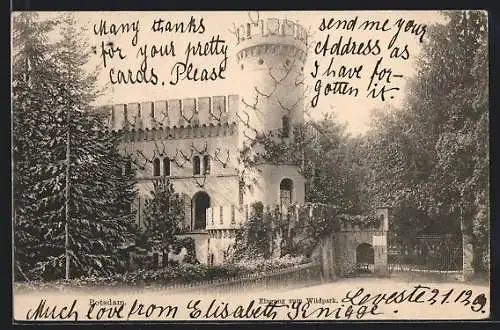 Many thanks
for your pretty
cards. Please
send me your
Address as
I have for-
gotten it.
Potsdam.
Eingang zum Wildpark.
Much love from Elisabeth Knigge. 21.12.